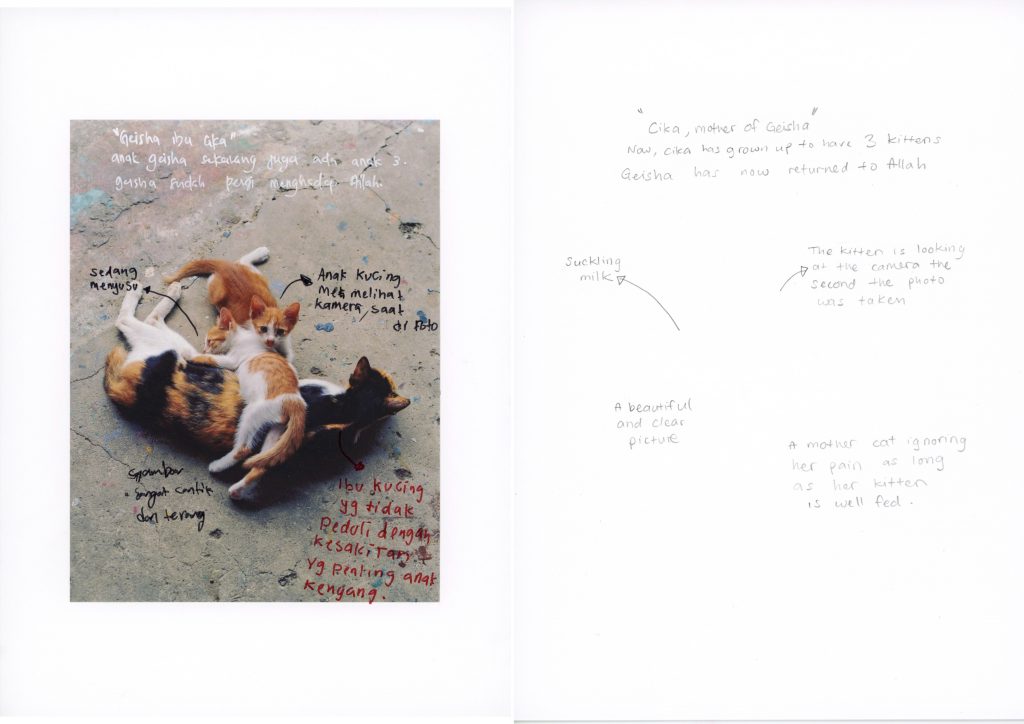 "Geisha ibu Cika"
anak geisha sekarang juga ada anak 3.
geisha sudah pergi menghadap Allah.
sedang
menyusu
Anak Kucing
melihat
kamera, saat
di Foto
Gambar
sangat cantik
dan terang
Ibu Kucing
yg tidak
Peduli dengan
kesakitan
Yg penting anak
Kenyang.
"Cika, mother of Geisha"
Now, Cika has grown up to have 3 kittens
Geisha has now returned to Allah
Suckling
milk
The kitten is looking
at the camera the
second the photo
was taken
A beautiful
and clear
picture
A mother cat ignoring
her pain as long
as her kitten
is well fed.